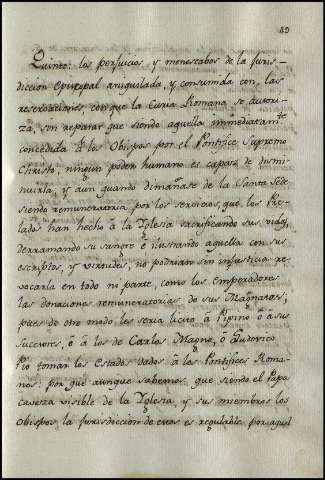 89
Quinto: los perjuicios, y menoscabos de la Juris-
diccion Episcopal aniquilada, y consumida con las
reservaciones, con que la Curia Romana se autori-
za, sin reparar que siendo aquella immediatamte
concedida á los Obispos por el Pontifice Supremo
Christo, ningun poder humano es capaz de dismi-
nuirla, y aun quando dimanase de la Santa Sede
siendo remuneratoria, por los servicios, que los Pre-
lados han hecho á la Yglesia sacrificando sus vidas,
derramando su sangre é ilustrando aquella con sus
escriptos, y virtudes, no podrian sin injusticia re-
vocarla en todo ni parte, como los Emperadores
las donaciones remuneratorias de sus Magnates,
pues de otro modo les seria licito á Pipino ó á sus
succesores, ó á los de Carlos Magno, ó Ludovico
Pio tomar los Estados dados á los Pontifices Roma-
nos: por que aunque sabemos, que siendo el Papa
caveza visible de la Yglesia, y sus miembros los
Obispos, la Jurisdiccion de estos es regulable por aquel